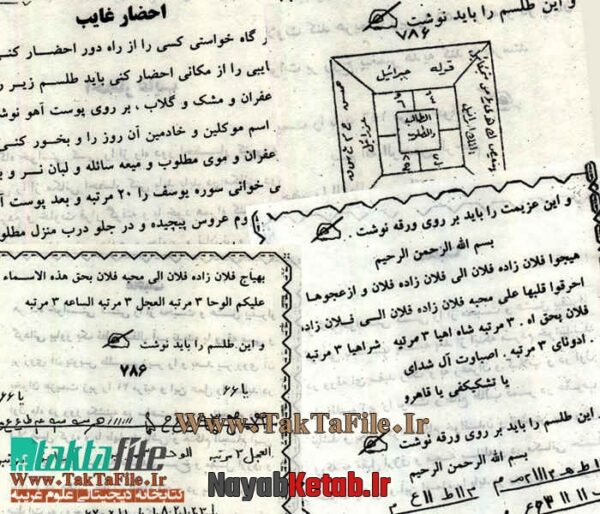 احضار غایب
ر گاه خواستی کسی را از راه دور احضار کنـ
ایبی را از مکانی احضار کنی باید طلسم زیر ر
عفران و مشک و گلاب ، بر روی پوست آهو نوشـ
اسم موکلین و خادمین آن روز را و بخور کنی
عفران و موی مطلوب و میعه سائله و لبان نر و یـ
خوانی سوره یوسف را ۲۰ مرتبه و بعد پوست آ
وم عروس پیچیده و در جلو درب منزل مطلو
و این طلسم را باید نوشت
۷۸۶
قوله
جبرائیل
الطالب
والمطلوب
و این عزیمت را باید بر روی ورقه نوشت .
بسم الله الرحمن الرحیم
هیجوا فلان زاده فلان الی فلان زاده فلان و ازعجوها
احرقوا قلبها علی محبه فلان زاده فلان الی فلان زاده
فلان بحق اه . ۳ مرتبه شاه اهیا ۳ مرتبه شراهیا ۳ مرتبه
. ادونای ۳ مرتبه . اصباوت آل شدای
یا تشکیکفی یا قاهرو
این طلسم را باید بر روی ورقه نوشت
بسم الله الرحمن الرحیم
بهیاج فلان زاده فلان الی محبه فلان بحق هذه الاسماء
علیکم الوحا ۳ مرتبه العجل ۳ مرتبه الساعه ۳ مرتبه
و این طلسم را باید نوشت
۷۸۶
یا ۶۶
یا ۶۶
العجل ۳ مرتبه
www.TakTaFile.Ir
taktafile
www.TakTaFile.Ir
کتابخانه دیجیتالی علوم غریبه
NayabKetab.Ir